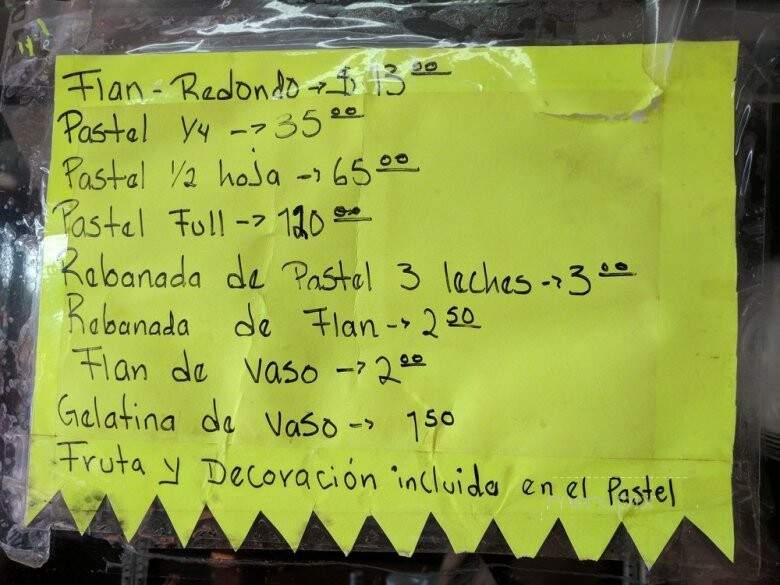 Flan-Redondo → $ 13 00
Pastel 1/4 → 35 00
Pastel 1/2 hoja → 65 00
Pastel Full → 120 00
Rebanada de Pastel 3 leches → 3 00
Rebanada de Flan → 2 50
Flan de vaso → 2 00
Gelatina de vaso → 1 50
Fruta y Decoración incluida en el Pastel